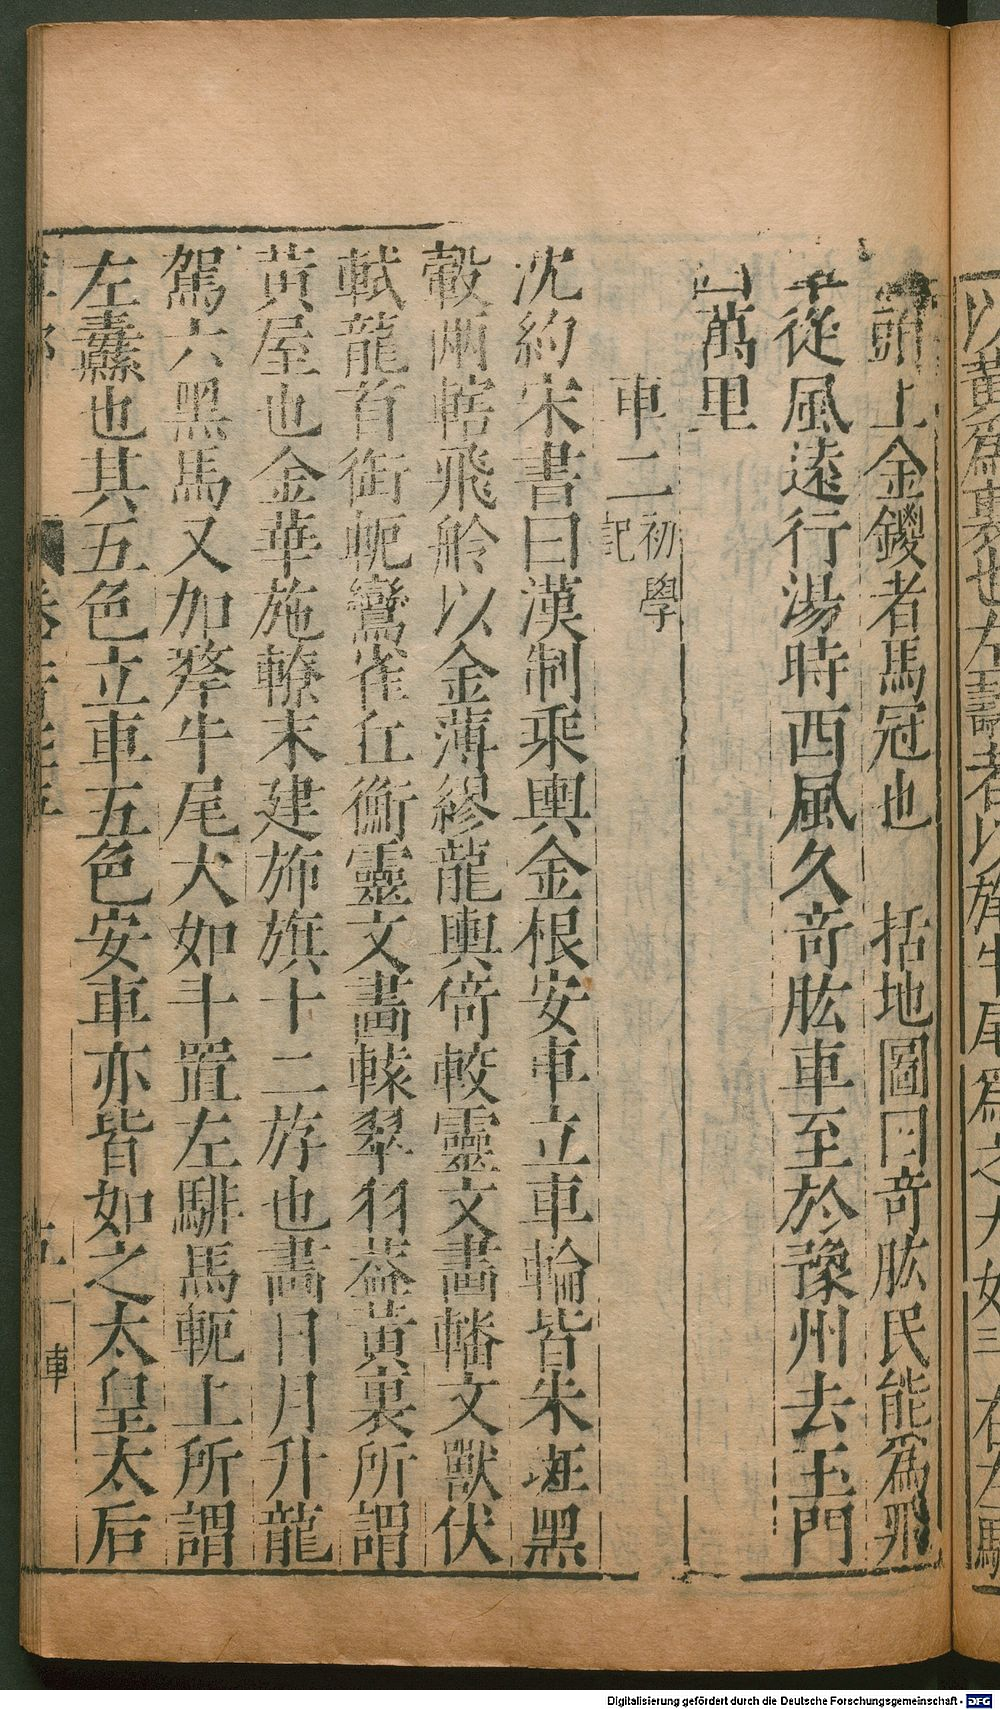 以黃爲裏也左纛者以旄牛尾爲之大如斗在左騑
頭上金鍐者馬冠也 括地圖曰奇肱民能爲飛
車從風遠行湯時西風久奇肱車至於豫州去玉門
四萬里
車二 初學記
沈約宋書曰漢制乘輿金根安車立車輪皆朱班黑
轂兩轄飛軨以金薄繆龍輿倚較靈文畫轓文獸伏
軾龍首銜軛鸞雀立衡靈文畫轅翠羽蓋黃裏所謂
黃屋也金華施轑末建旂旗十二斿也畫日月升龍
駕六黑馬又加犛牛尾大如斗置左騑馬軛上所謂
左纛也其五色立車五色安車亦皆如之太皇太后
車
Digitalisierung gefördert durch die Deutsche Forschungsgemeinschaft - DFG